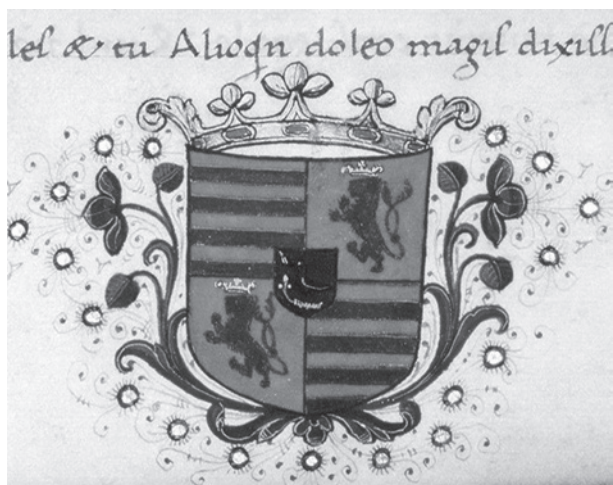 lel & tu Alioqn doleo magil dixill